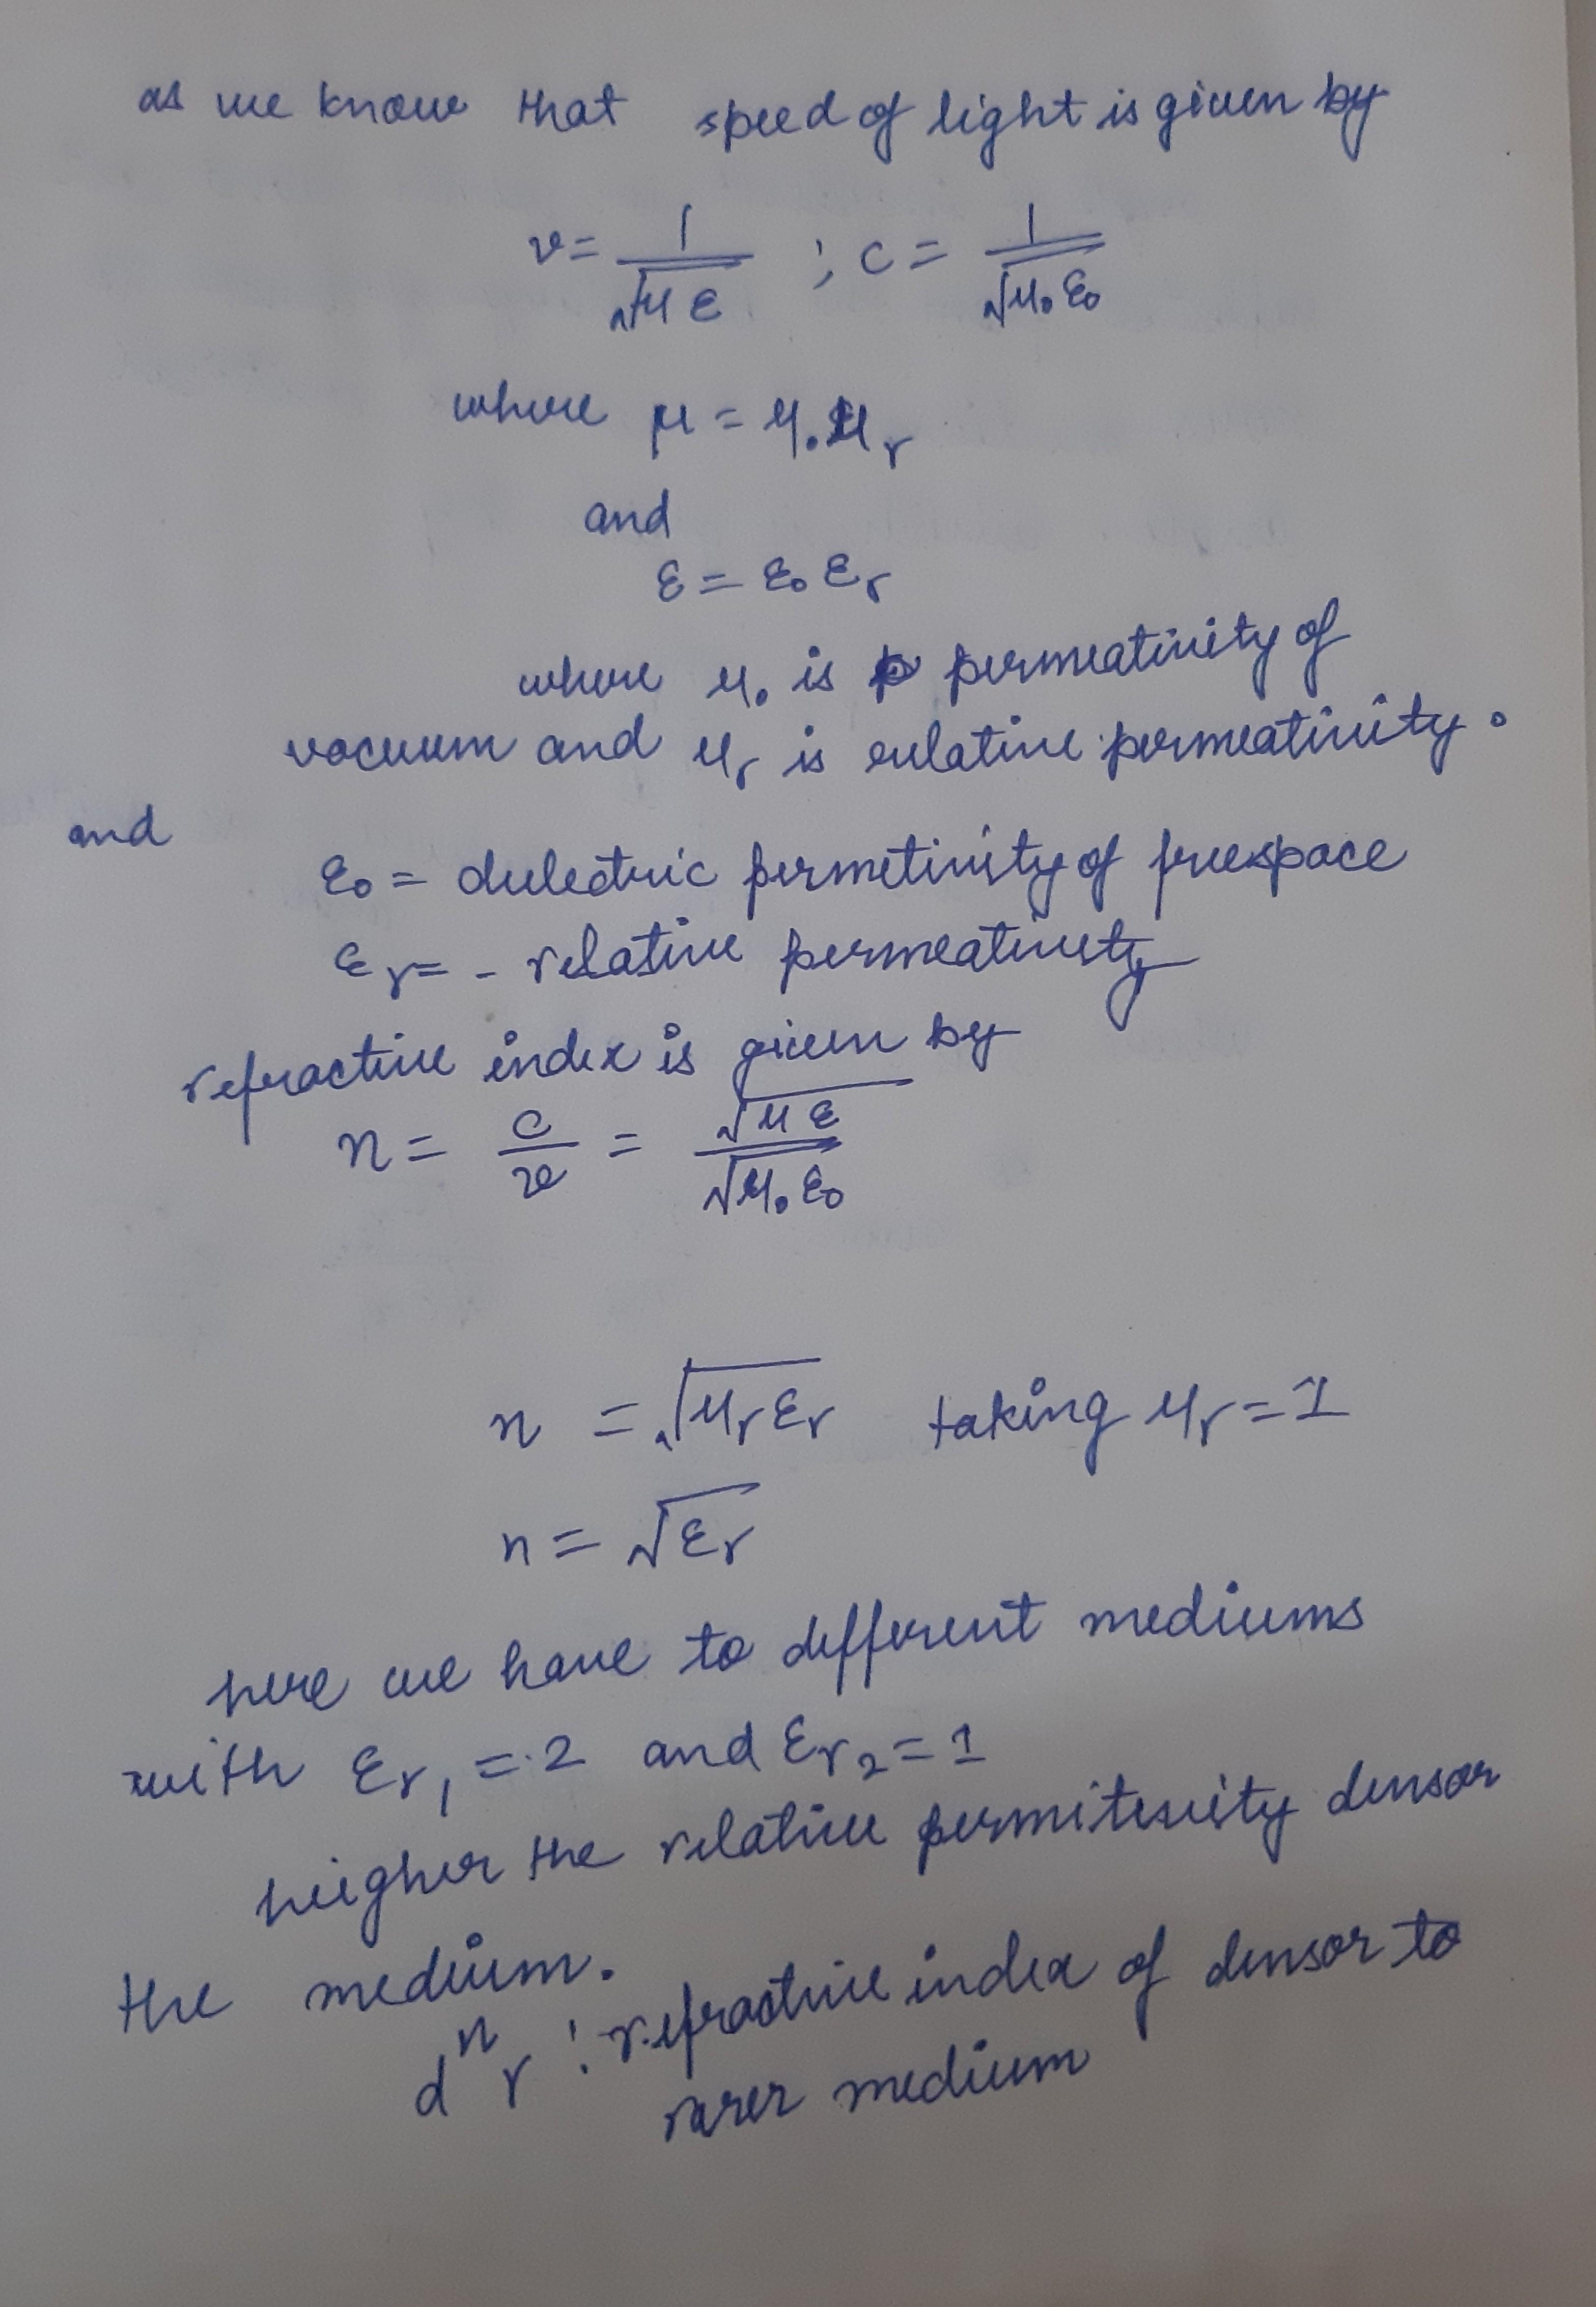 as we know that speed of light is given by
v = 1/√με ; c = 1/√μ₀ε₀
where μ = μ₀μr
and
ε = ε₀ εr
where μ₀ is permeativity of
vacuum and μr is relative permeativity.
and
ε₀ = dielectric permetivity of freespace
εr = - relative permeativity
refractive index is given by
n = c/v = √με/√μ₀ε₀
n = √μrεr taking μr = 1
n = √εr
here we have to different mediums
with εr₁ = 2 and εr₂ = 1
heigher the relative permitevity densor
the medium.
dⁿr : refractive index of densor to
rarer medium